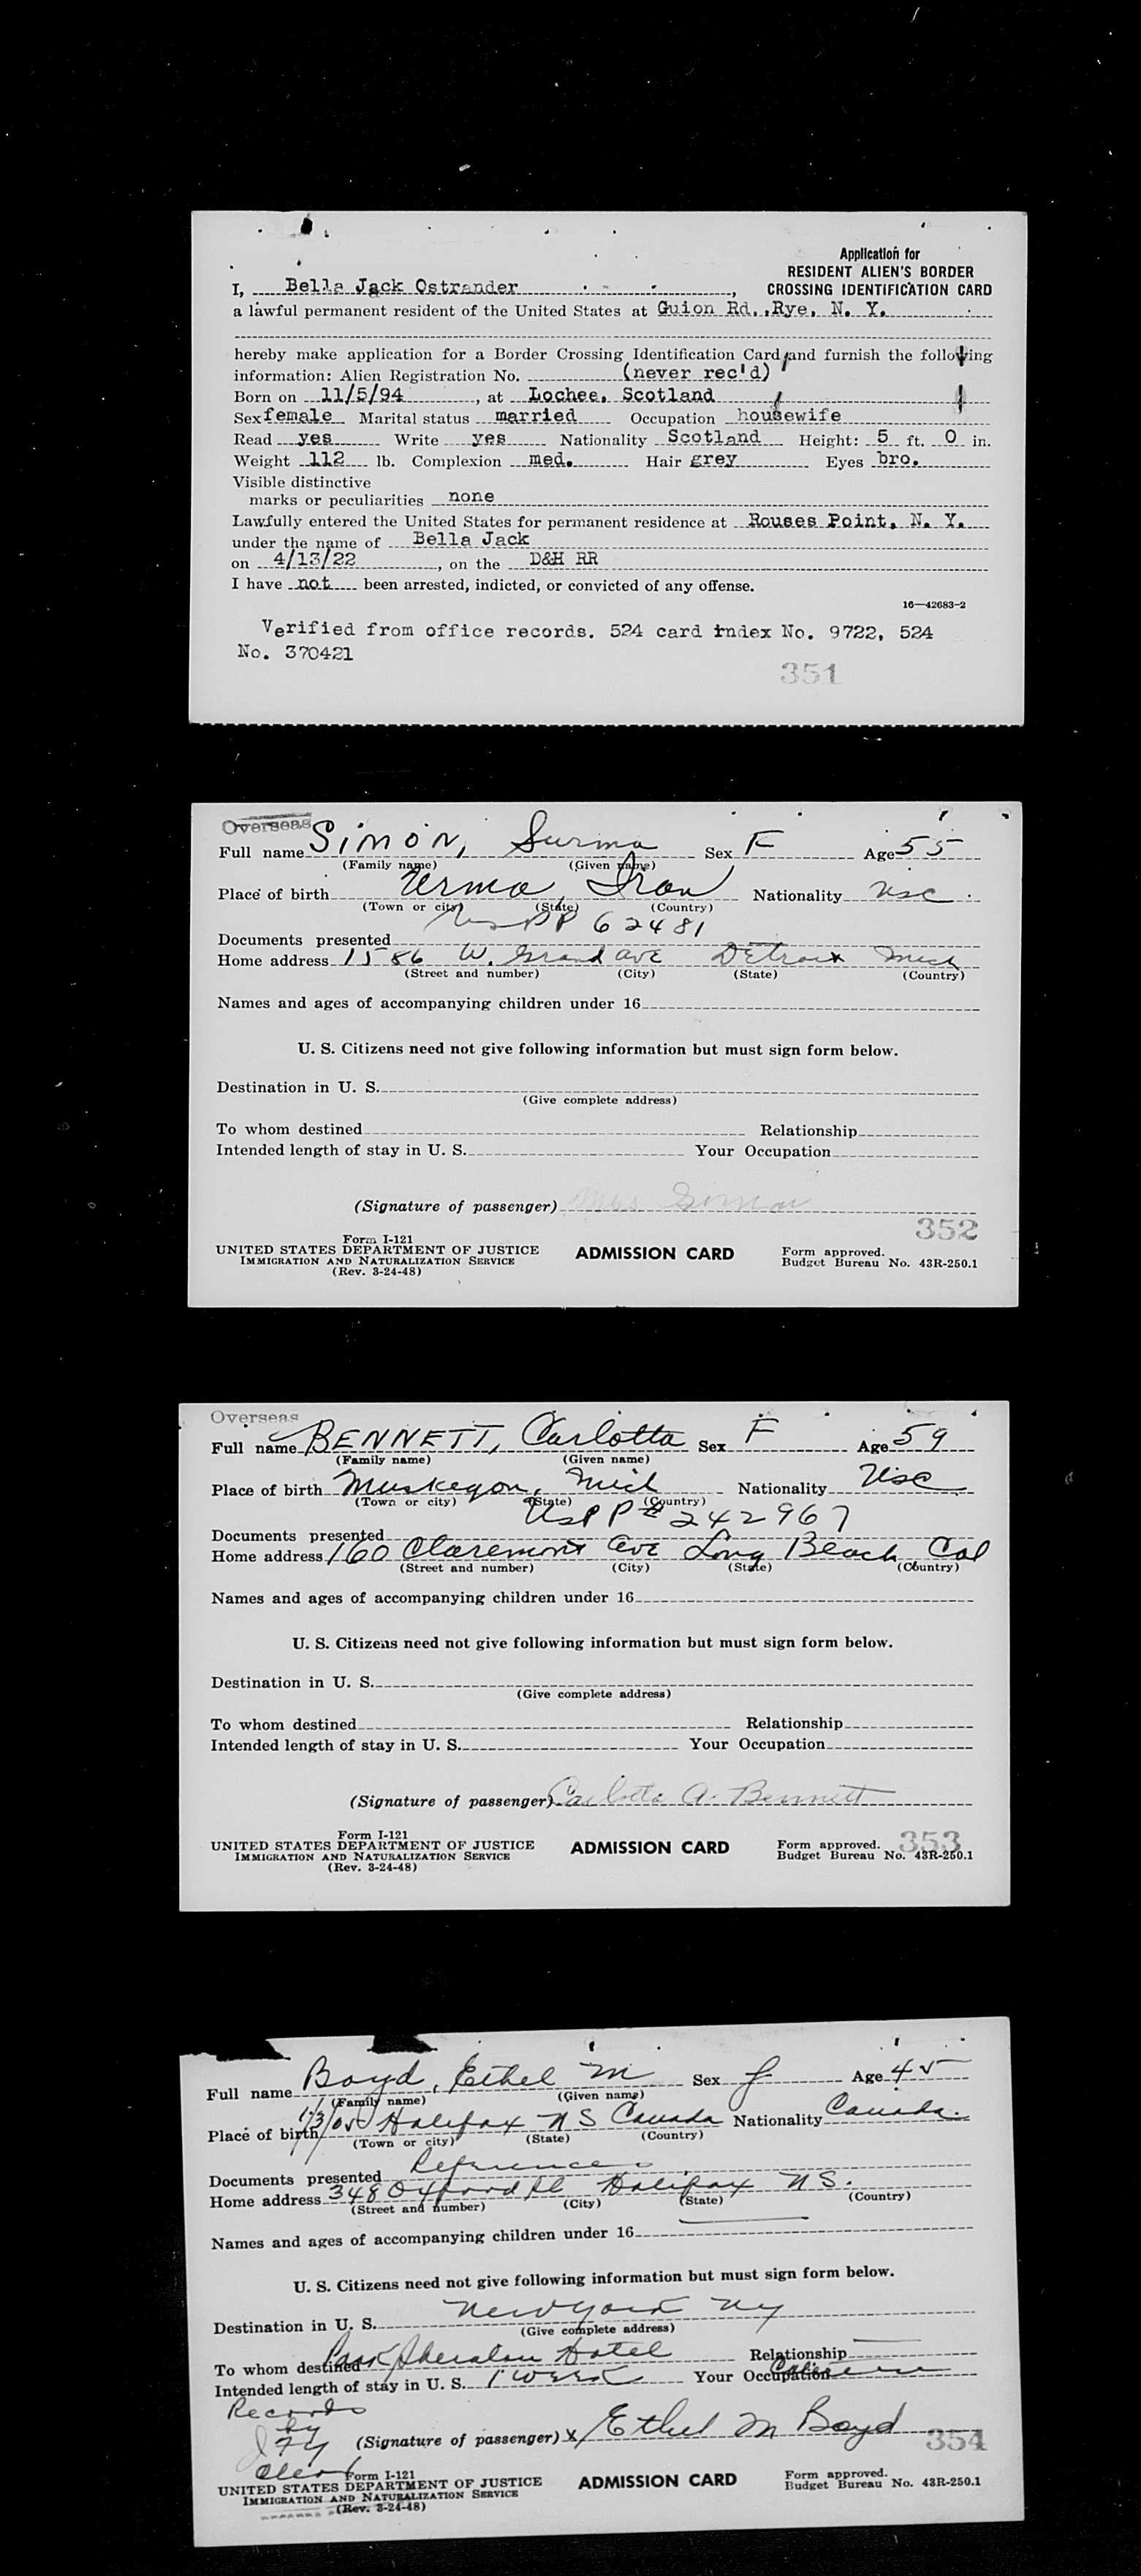 Application for
RESIDENT ALIEN'S BORDER
CROSSING IDENTIFICATION CARD
I, Bella Jack Ostrander,
a lawful permanent resident of the United States at Guion Rd., Rye, N. Y.
hereby make application for a Border Crossing Identification Card and furnish the following
information: Alien Registration No. (never rec'd)
Born on 11/5/94, at Lochee, Scotland
Sex female Marital status married Occupation housewife
Read yes Write yes Nationality Scotland Height: 5 ft. 0 in.
Weight 112 lb. Complexion med. Hair grey Eyes bro.
Visible distinctive
marks or peculiarities none
Lawfully entered the United States for permanent residence at Rouses Point, N. Y.
under the name of Bella Jack
on 4/13/22, on the D&H RR
I have not been arrested, indicted, or convicted of any offense.
16—42683-2
Verified from office records. 524 card index No. 9722, 524
No. 370421
351
Overseas
Full name SIMON, Surma Sex F Age 55
(Family name) (Given name)
Place of birth Urma, Iran Nationality USC
(Town or city) (State) (Country)
USPP 62481
Documents presented
Home address 1586 W. Grand Ave Detroit Mich
(Street and number) (City) (State) (Country)
Names and ages of accompanying children under 16
U. S. Citizens need not give following information but must sign form below.
Destination in U. S.
(Give complete address)
To whom destined Relationship
Intended length of stay in U. S. Your Occupation
(Signature of passenger) Mrs Simon
352
Form I-121
UNITED STATES DEPARTMENT OF JUSTICE
IMMIGRATION AND NATURALIZATION SERVICE
(Rev. 3-24-48)
ADMISSION CARD
Form approved.
Budget Bureau No. 43R-250.1
Overseas
Full name BENNETT, Carlotta Sex F Age 59
(Family name) (Given name)
Place of birth Muskegon, Mich Nationality USC
(Town or city) (State) (Country)
USPP # 242967
Documents presented
Home address 160 Claremont Ave Long Beach Cal
(Street and number) (City) (State) (Country)
Names and ages of accompanying children under 16
U. S. Citizens need not give following information but must sign form below.
Destination in U. S.
(Give complete address)
To whom destined Relationship
Intended length of stay in U. S. Your Occupation
(Signature of passenger) Carlotta A. Bennett
353
Form I-121
UNITED STATES DEPARTMENT OF JUSTICE
IMMIGRATION AND NATURALIZATION SERVICE
(Rev. 3-24-48)
ADMISSION CARD
Form approved.
Budget Bureau No. 43R-250.1
Full name Boyd, Ethel M Sex f Age 45
(Family name) (Given name)
Place of birth 1/3/05 Halifax N S Canada Nationality Canada.
(Town or city) (State) (Country)
Documents presented References
Home address 348 Oxford St Halifax N S.
(Street and number) (City) (State) (Country)
Names and ages of accompanying children under 16
U. S. Citizens need not give following information but must sign form below.
Destination in U. S. New York NY
(Give complete address)
To whom destined Park Sheraton Hotel Relationship
Intended length of stay in U. S. 1 week Your Occupation
Records
by
(Signature of passenger) x Ethel M Boyd
354
Form I-121
UNITED STATES DEPARTMENT OF JUSTICE
IMMIGRATION AND NATURALIZATION SERVICE
(Rev. 3-24-48)
ADMISSION CARD
Form approved.
Budget Bureau No. 43R-250.1